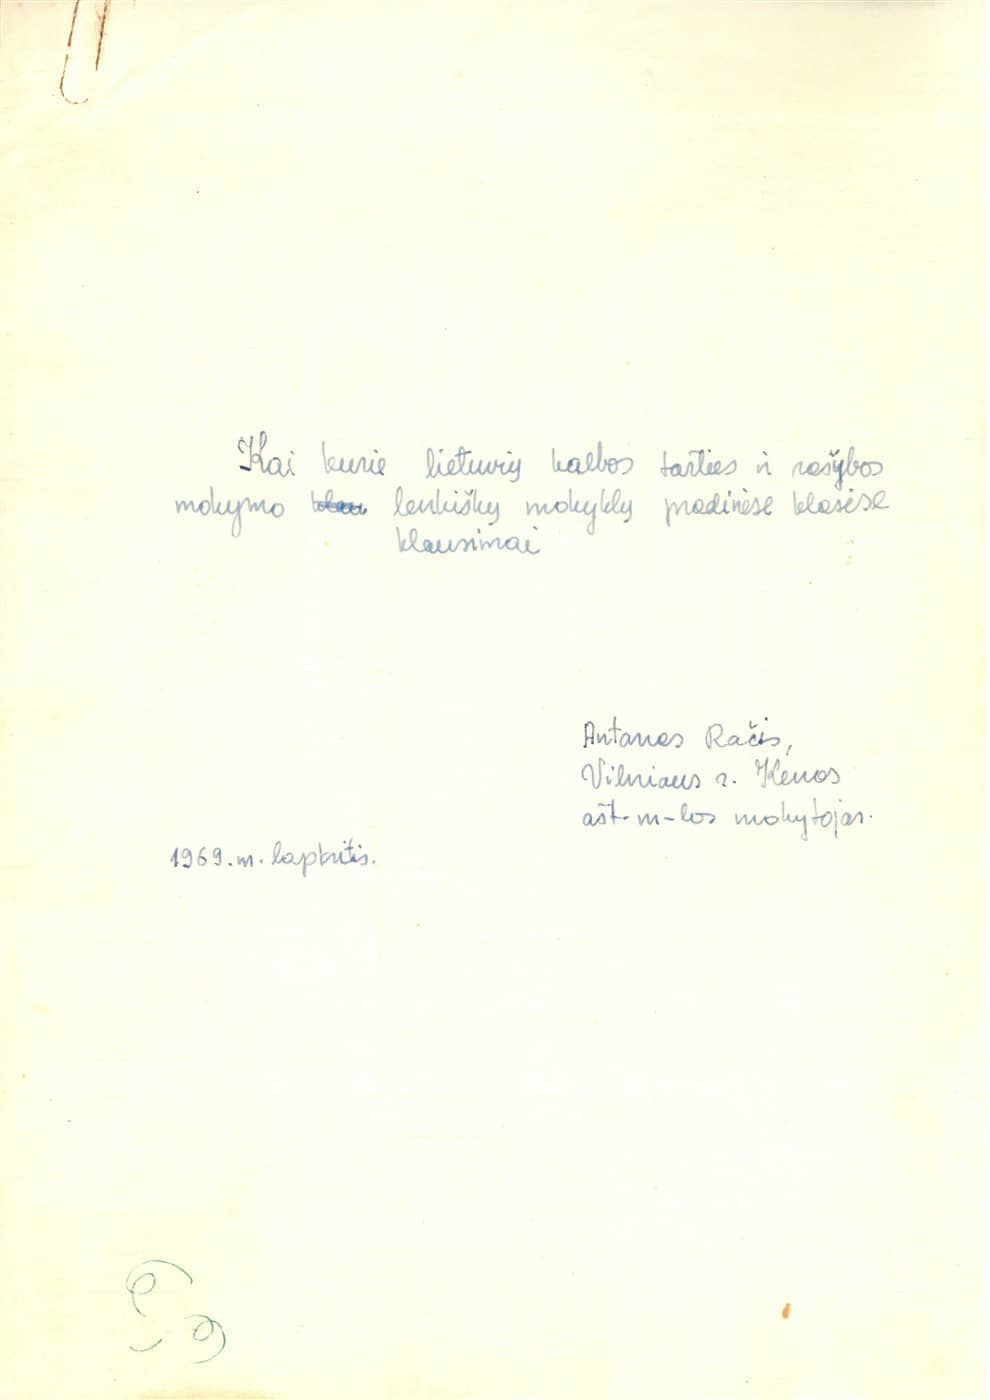 Kai kurie lietuvių kalbos tarties ir rašybos
mokymo klau lenkiškų mokyklų pradinėse klasėse
klausimai
Antanas Račis,
Vilniaus r. Kenos
ašt. m-los mokytojas.
1969. m. lapkritis.